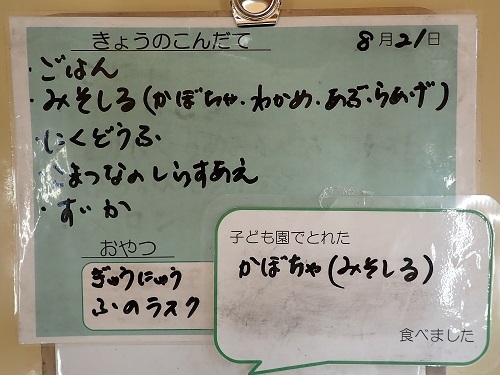 きょうのこんだて
8月21日
・ごはん
・みそしる(かぼちゃ・わかめ・あぶらあげ)
・にくどうふ
こまつなのしらすあえ
・すいか
おやつ
ぎゅうにゅう
ふのラスク
子ども園でとれた
かぼちゃ(みそしる)
食べました